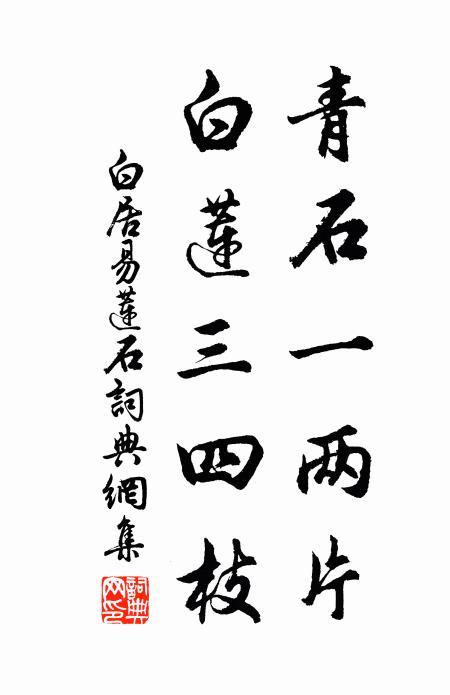 青石一两片
白蓮三四枝
白居易蓮石詞典網集
詞典
网印